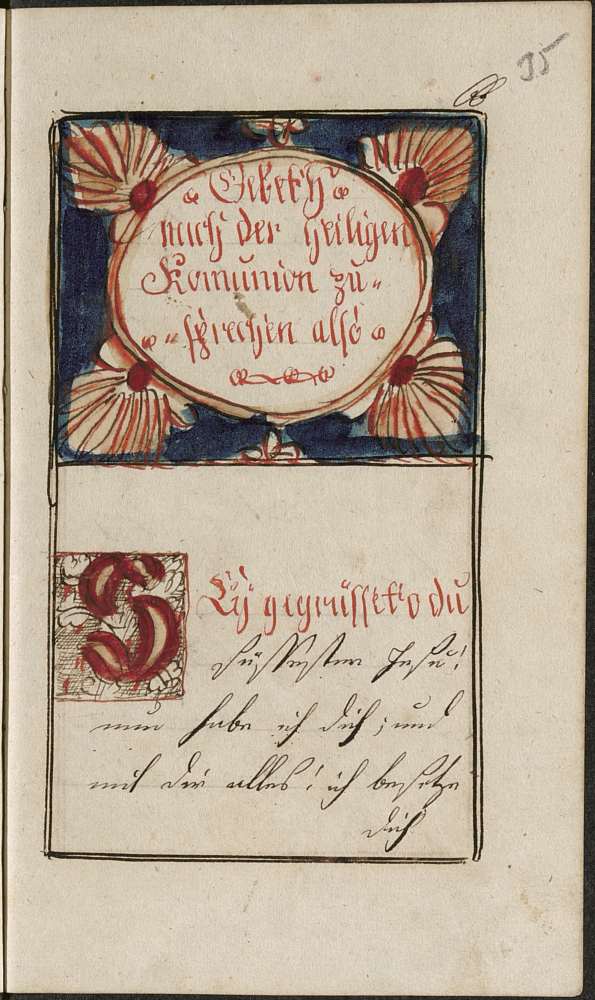 35
Gebeth
nach der heiligen
Komunion zu„
„sprechen also
Sey gegrüsset o du
süssester Jesu!
nun habe ich dich; und
mit dir alles! ich besitze
dich